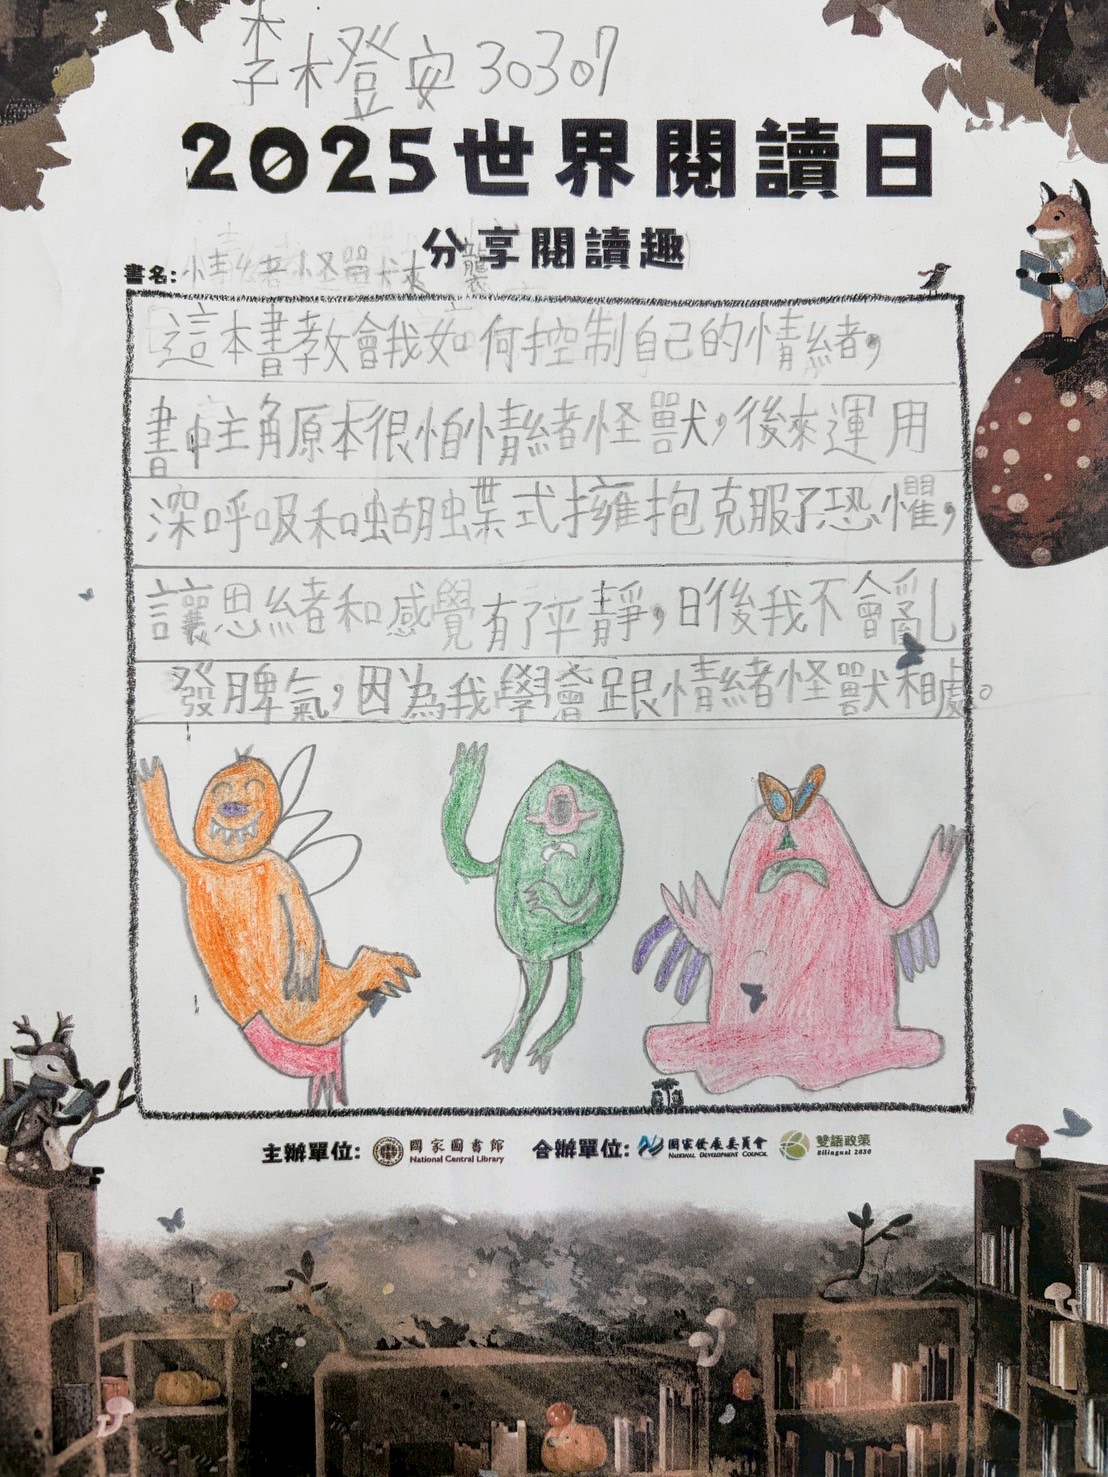 李橙安30307
2025世界閱讀日
分享閱讀趣
書名:情緒怪獸來襲
這本書教會我如何控制自己的情緒,
書中主角原本很怕情緒怪獸,後來運用
深呼吸和蝴蝶式擁抱克服了恐懼,
讓思緒和感覺有了平靜,日後我不會亂
發脾氣,因為我學會跟情緒怪獸相處。
主辦單位: 國家圖書館 合辦單位: 國家發展委員會 雙語政策
National Central Library NATIONAL DEVELOPMENT COUNCIL Bilingual 2030